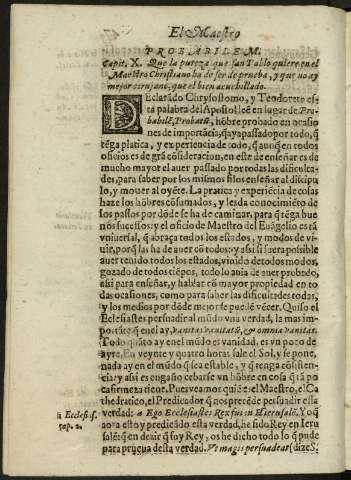 El Maestro
PROBABILEM.
Capit. X. Que la pureza que san Pablo quiere en el
Maestro Christiano ha de ser de prueba, y que no ay
mejor cirujano, que el bien acuchillado.
DEclarādo Chrysostomo, y Teodoreto es-
ta palabra del Apostol leē en lugar de Pro-
babilē, Probatū, hōbre probado en ocasio
nes de importācia, q̄ aya passado por todo, q̄
tēga platica, y experiencia de todo, q̄ aunq̄ en todos
oficios es de grā cōsideracion, en este de enseñar es de
mucho mayor el auer passado por todas las dificulta-
des, para saber por los mismos filos enseñar al discipu
lo, y mouer al oyēte. La pratica y experiēcia de cosas
haze los hōbres cōsumados, y les da conocimiēto de
los passos por dōde se ha de caminar, para q̄ tēga bue
nos sucessos: y el oficio de Maestro del Euāgelio es tā
vniuersal, q̄ abraça todos los estados, y modos de vi-
uir, porq̄ las ha de auer cō todos: y assi si fuera possible
auer tenido todos los estados, viuido de todos modos,
gozado de todos tiēpos, todo lo auia de auer probado,
assi para enseñar, y hablar cō mayor propiedad en to
das ocasiones, como para saber las dificultades todas,
y los medios por dōde mejor se puedē vēcer. Quiso el
Eclesiastes persuadir al mūdo vna verdad, la mas im-
portāte q̄ en el ay, vanitas vanitatū, & omnia vanitas.
Todo quāto ay en el mūdo es vanidad, es vn poco de
ayre. En veynte y quatro horas sale el Sol, y se pone,
nada ay en el mūdo q̄ sea estable, y q̄ tenga cōsisten-
cia: y assi es engaño cebarse vn hōbre en cosa q̄ tā po
ca firmeza tiene. Pues veamos quiē es el Maestro, el Ca
thedratico, el Predicador q̄ nos pretēde persuadir esta
verdad: a Ego Ecclesiastes Rex fui in Hierusalē. Yo q̄
aora esto y predicādo esta verdad, he sido Rey en Ieru
salē: q̄ en dezir q̄ fuy Rey, os he dicho todo lo q̄ pude
para prueua desta verdad. Vt magis persuadeat (dize S.
a Ecclesiast.
cap. 1.